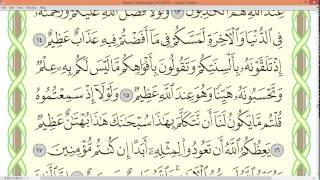 عِندَ ٱللَّهِ هُمُ ٱلْكَٰذِبُونَ ١٣ وَلَوْلَا فَضْلُ ٱللَّهِ عَلَيْكُمْ وَرَحْمَتُهُۥ
فِى ٱلدُّنْيَا وَٱلْءَاخِرَةِ لَمَسَّكُمْ فِى مَآ أَفَضْتُمْ فِيهِ عَذَابٌ عَظِيمٌ ١٤
إِذْ تَلَقَّوْنَهُۥ بِأَلْسِنَتِكُمْ وَتَقُولُونَ بِأَفْوَاهِكُم مَّا لَيْسَ لَكُم بِهِۦ عِلْمٌ
وَتَحْسَبُونَهُۥ هَيِّنًا وَهُوَ عِندَ ٱللَّهِ عَظِيمٌ ١٥ وَلَوْلَآ إِذْ سَمِعْتُمُوهُ
قُلْتُم مَّا يَكُونُ لَنَآ أَن نَّتَكَلَّمَ بِهَٰذَا سُبْحَٰنَكَ هَٰذَا بُهْتَٰنٌ عَظِيمٌ
١٦ يَعِظُكُمُ ٱللَّهُ أَن تَعُودُوا۟ لِمِثْلِهِۦٓ أَبَدًا إِن كُنتُم مُّؤْمِنِينَ ١٧